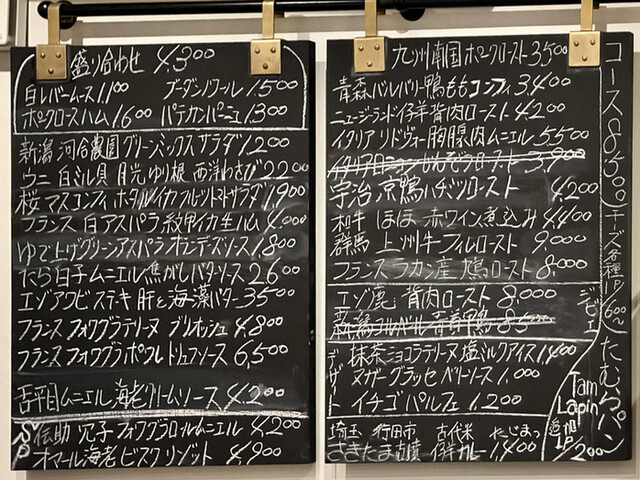 盛り合わせ 4,300
白レバームース 1100 ブーダンノワール 1,500
ポークロースハム 1600 パテカンパーニュ 1300
新潟 河合農園 グリーンミックスサラダ 1,200
ウニ 白ミル貝 月光ゆり根 西洋わさび 2200
桜マスコンフィ ホタルイカ フルーツトマトサラダ 1,900
フランス 白アスパラ 紋甲イカ 生ハム 4,000
ゆで上げグリーンアスパラ オランデーズソース 1,800
たら白子ムニエル 焦がしバターソース 2600
エゾアワビステーキ 肝と海藻バター 3500
フランス フォワグラテリーヌ ブリオッシュ 4,800
フランス フォワグラポワレ トリュフソース 6,500
舌平目ムニエル 海老クリームソース 4,200
伝助 穴子フォワグラロールムニエル 4,200
オマール海老 ビスク リゾット 4,900
九州南国 ポークロースト 3500
青森 バルバリー鴨ももコンフィ 3,400
ニュージーランド 仔羊 背肉ロースト 4200
イタリア リドヴォー 胸腺肉ムニエル 5500
宇治 京鴨ハチミツロースト 4,200
和牛 ほほ 赤ワイン煮込み 4,400
群馬 上州牛フィレロースト 9,000
フランス ラカン産 鳩ロースト 8,000
エゾ鹿 背肉ロースト 8,000
ジビエ
デザート
抹茶ショコラテリーヌ 塩ミルクアイス 1,400
ヌガーグラッセ ベリーソース 1,000
イチゴパルフェ 1,200
埼玉 行田市 古代米 たじまっ
さきたま古墳 仔羊カレー 1,400
コース 8500
チーズ各種1P 600〜
たむらパン
Tam Lapin
追加1P 200